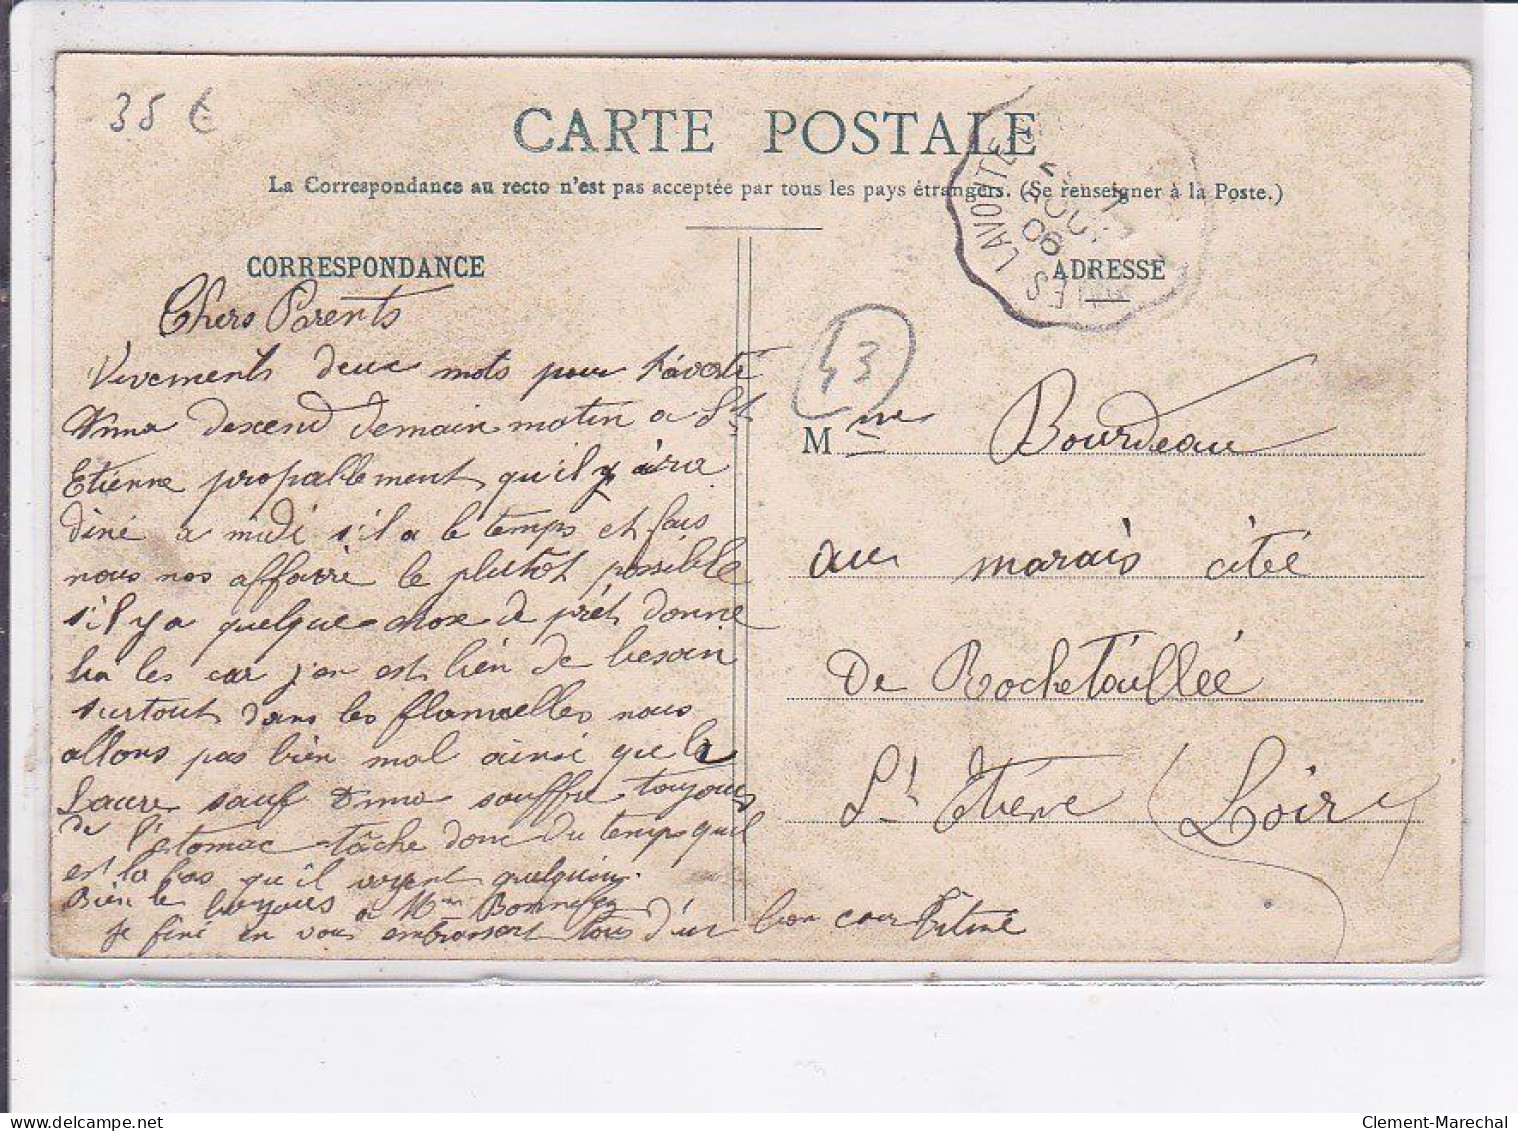 35 €
CARTE POSTALE
La Correspondance au recto n'est pas acceptée par tous les pays étrangers. (Se renseigner à la Poste.)
LAVOUTE
06
CORRESPONDANCE
ADRESSE
43
Chers Parents
Vivements deux mots pour t'averti
Anna dexend demain matin a St
Etienne propablement qu'il y ira
diné a midi s'il a le temps et fais
nous nos affairre le plutôt possible
s'il y a quelque chose de prêt donne
lui les car j'en est bien de besoin
surtout dans les flanelles nous
allons pas bien mal ainsi que la
Laure sauf Anna souffre toujours
de l'estomac tâche donc du temps quil
est la bas qu'il voyent quelquun.
Bien le bonjours a Mme
Je fini en vous embrassant tous d'un bon cœur
Mme Bourdeau
au marais cité
de Rochetaillée
St Etiene (Loire)
delcampe.net
Clement-Marechal